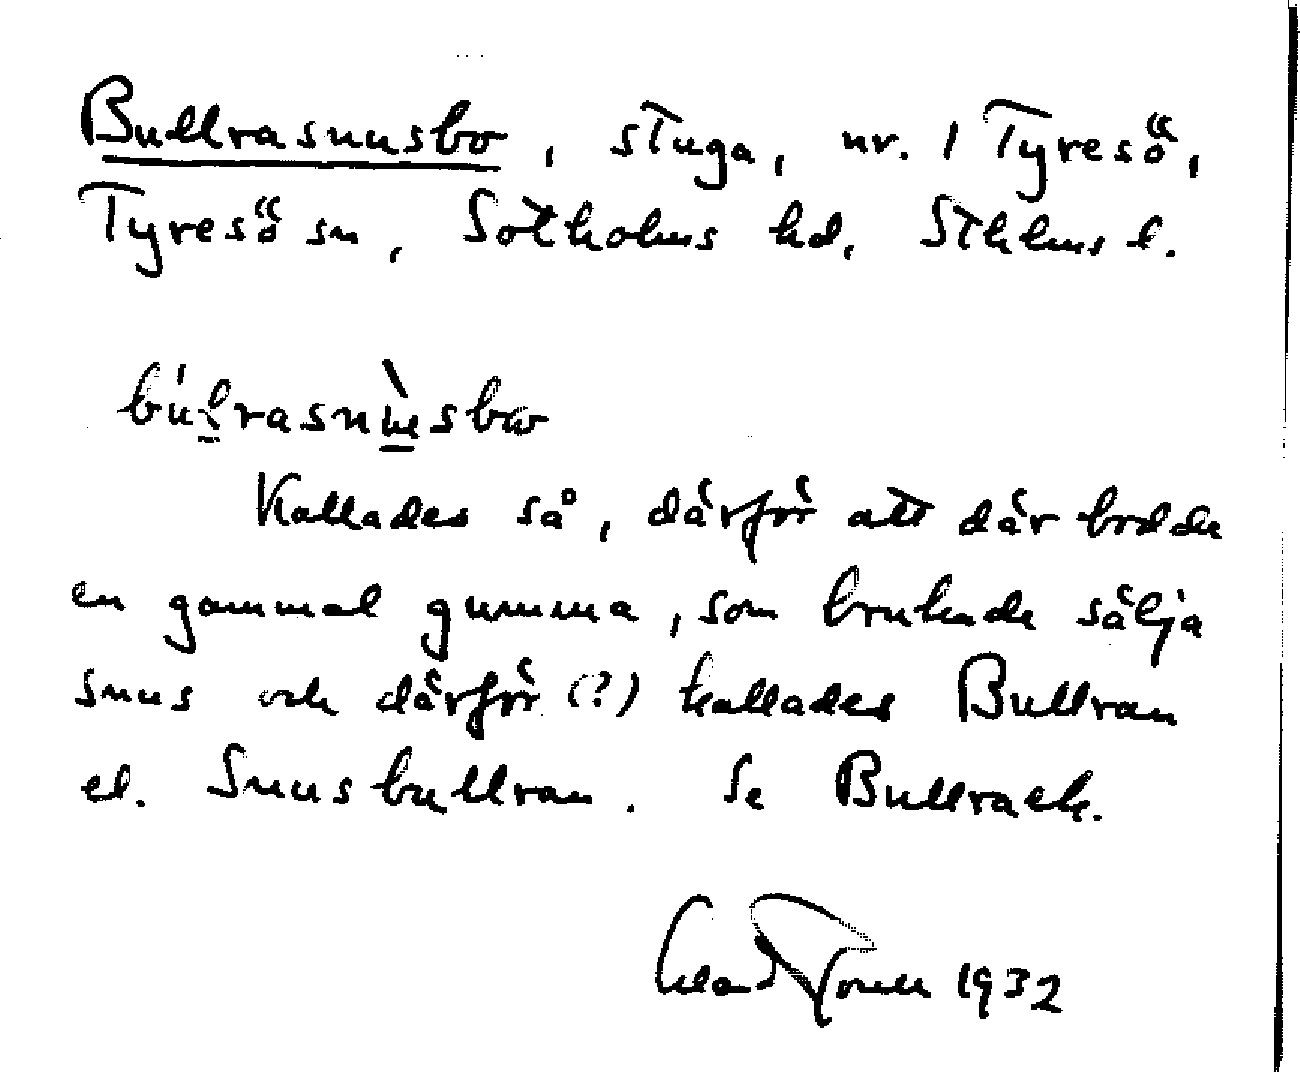 Bullrasnusbo, stuga, nr. 1 Tyresö,
Tyresö sn, Sotholms hd, Sthlms l.
Kallades så, därför att där bodde
en gammal gumma, som brukade sälja
snus och därför (?) kallades Bullran
el. Snusbullran. Se Bullrach.
1932